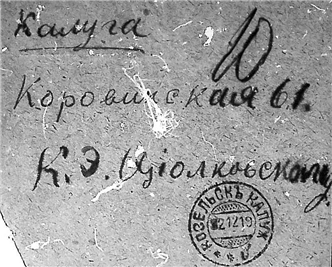 Калуга
10
Коровинская 61.
К. Э. Ціолковскому
КОЗЕЛЬСКЪ КАЛУЖ.